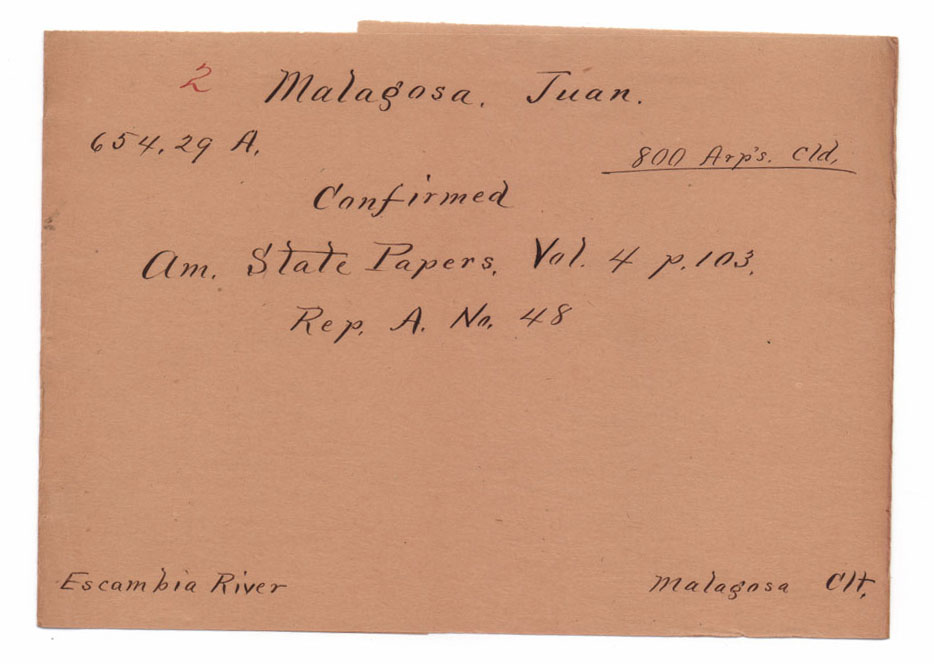 2 Malagosa, Juan.
654.29 A. 800 Arp's. Cld.
Confirmed
Am. State Papers, Vol. 4 p. 103.
Rep. A. No. 48
Escambia River Malagosa Clt.